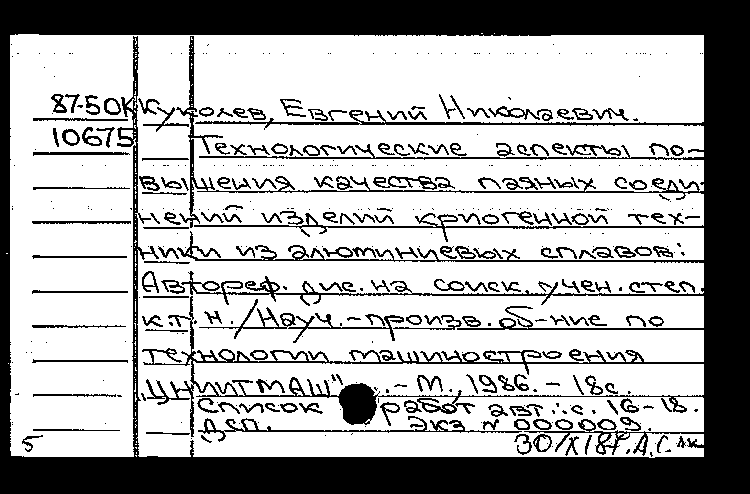 87-50К Куколев, Евгений Николаевич.
10675 Технологические аспекты по-
вышения качества паяных соеди-
нений изделий криогенной тех-
ники из алюминиевых сплавов:
Автореф. дис. на соиск. учен. степ.
к.т.н. / Науч.-произв. об-ние по
технологии машиностроения
"ЦНИИТМАШ". - М., 1986. - 18с.
Список работ авт.: с. 16-18.
Дсп. Экз № 000009.
5 30/X 187. А.С.